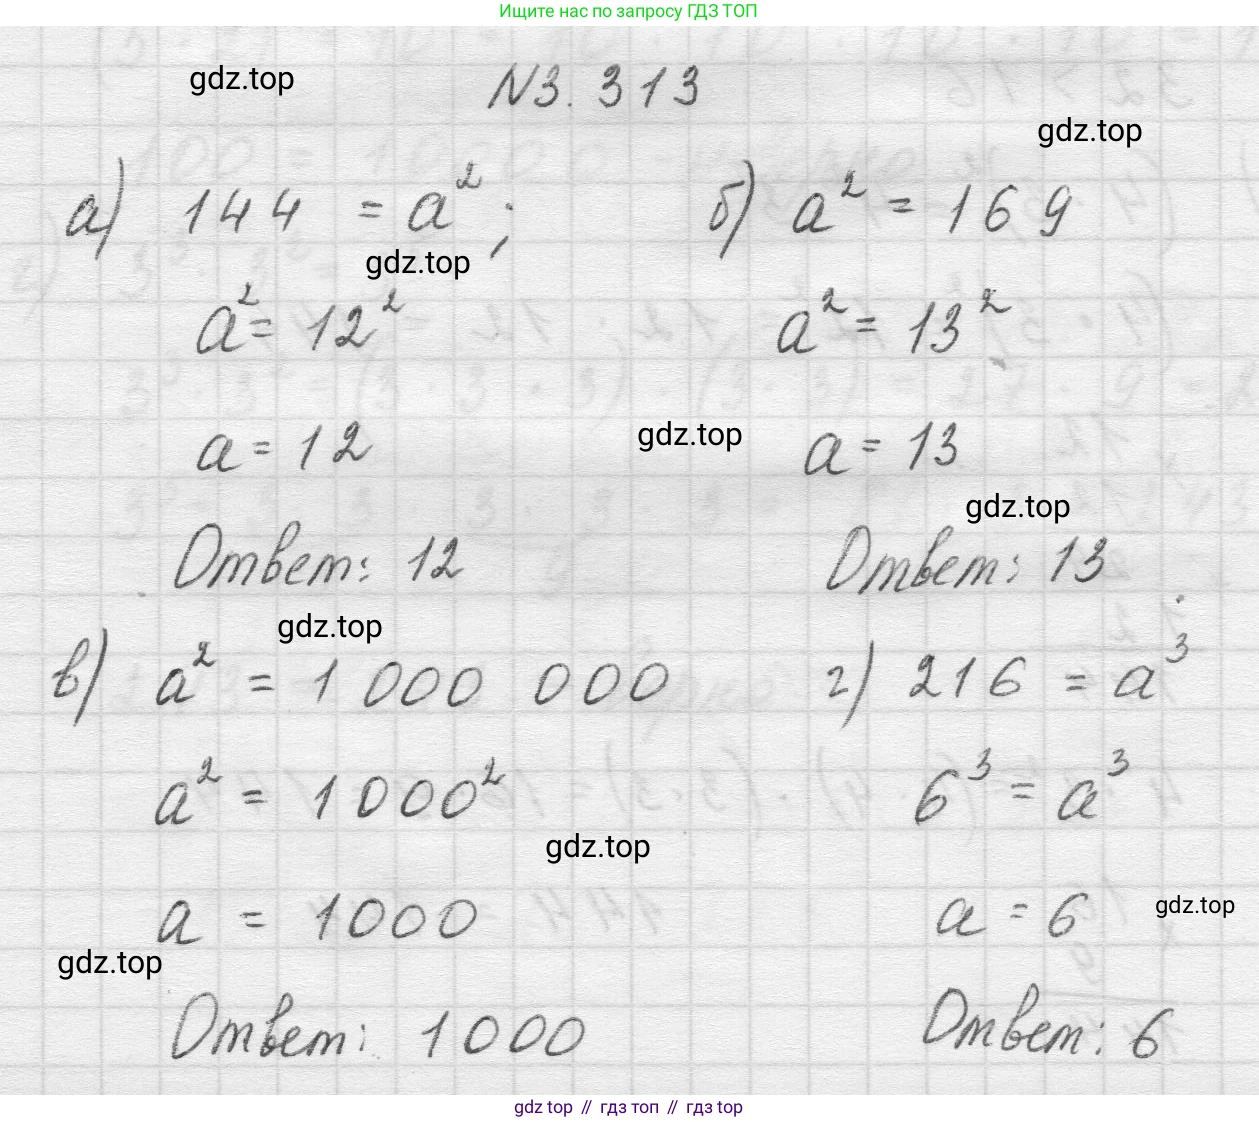 Ищите нас по запросу ГДЗ ТОП
gdz.top
N3.313
gdz.top
а) 144 = a²;
б) a² = 169
gdz.top
a² = 12²
a² = 13²
a = 12
gdz.top
a = 13
gdz.top
Ответ: 12
Ответ: 13
gdz.top
в) a² = 1 000 000
г) 216 = a³
a² = 1000²
6³ = a³
gdz.top
a = 1000
a = 6
gdz.top
gdz.top
Ответ: 1000
Ответ: 6
gdz top // гдз топ // gdz top